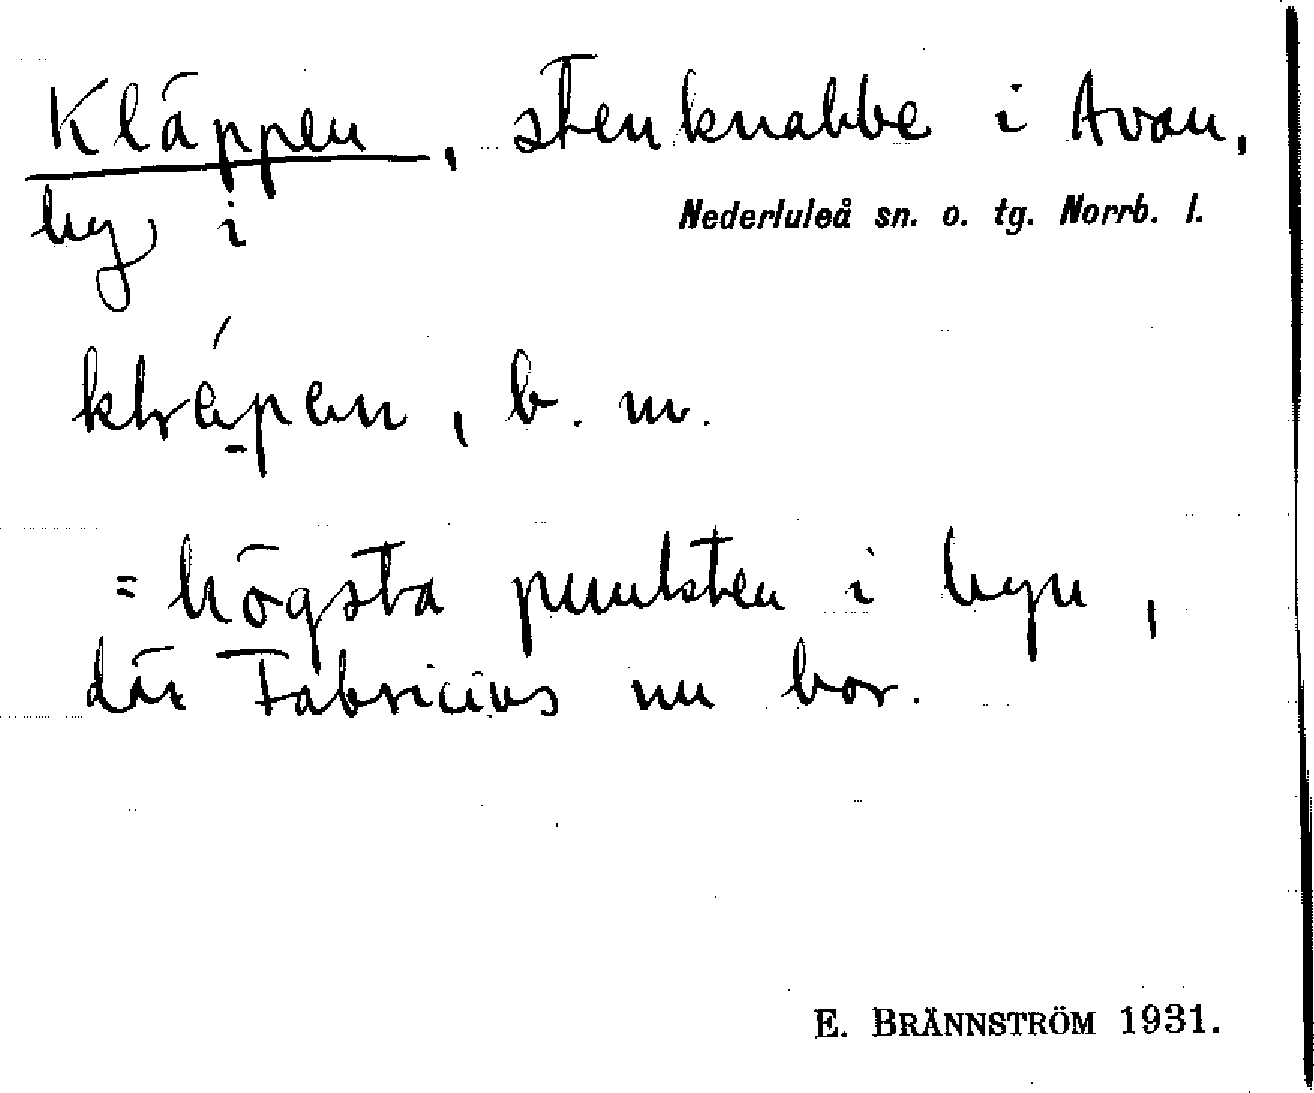 Kläppen, stenknabbe i Avan,
by i Nederluleå sn. o. tg. Norrb. l.
, b. m.
= högsta punkten i byn,
där Fabricius nu bor.
E. BRÄNNSTRÖM 1931.